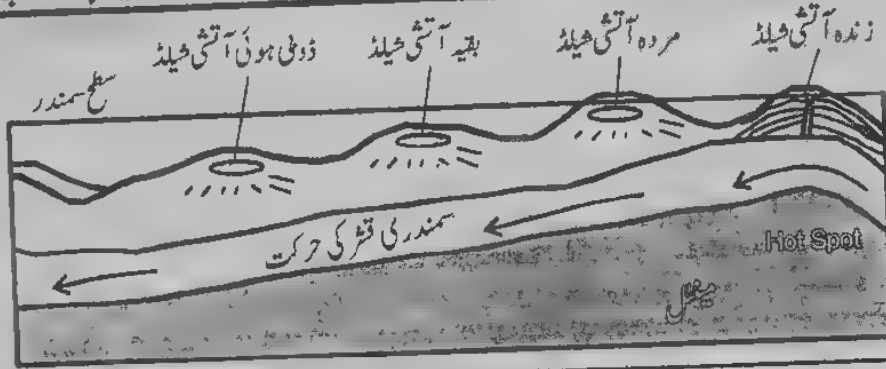 زندہ آتشی شیلڈ
مردہ آتشی شیلڈ
بقیہ آتشی شیلڈ
ڈوبتی ہوئی آتشی شیلڈ
سطح سمندر
سمندری قشر کی حرکت
Hot Spot
مینٹل